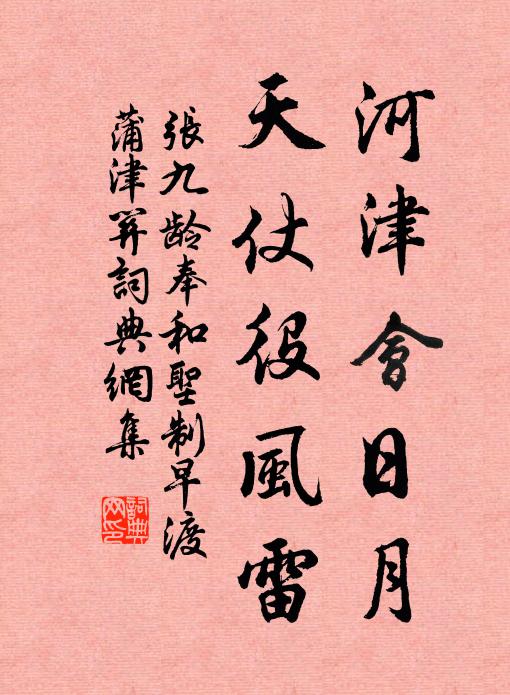 河津會日月
天仗役風雷
張九齡奉和聖制早渡
蒲津關詞典網集
詞典
网印